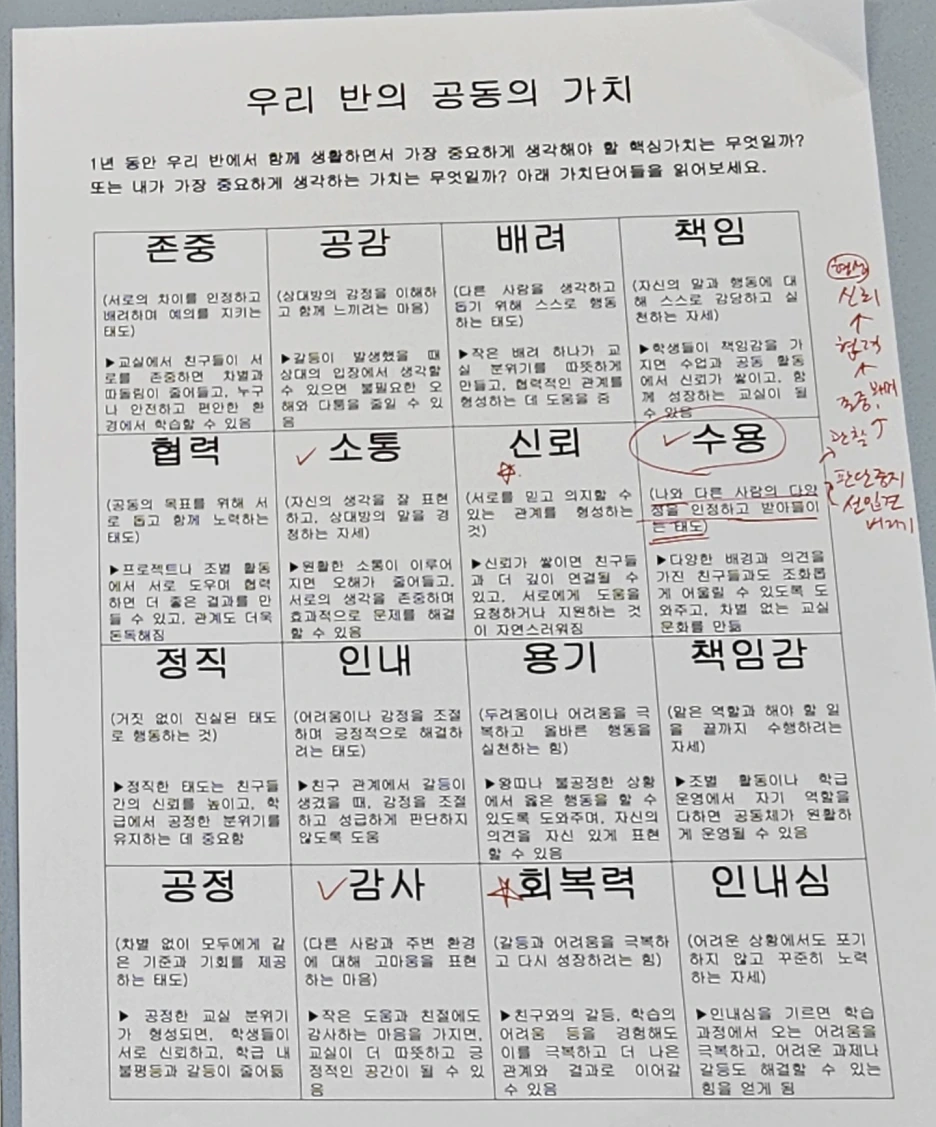 우리 반의 공동의 가치
1년 동안 우리 반에서 함께 생활하면서 가장 중요하게 생각해야 할 핵심가치는 무엇일까?
또는 내가 가장 중요하게 생각하는 가치는 무엇일까? 아래 가치단어들을 읽어보세요.
존중
(서로의 차이를 인정하고
배려하며 예의를 지키는
태도)
▶교실에서 친구들이 서
로를 존중하면 차별과
따돌림이 줄어들고, 누구
나 안전하고 편안한 환
경에서 학습할 수 있음
공감
(상대방의 감정을 이해하
고 함께 느끼려는 마음)
▶갈등이 발생했을 때
상대의 입장에서 생각할
수 있으면 불필요한 오
해와 다툼을 줄일 수 있
음
배려
(다른 사람을 생각하고
돕기 위해 스스로 행동
하는 태도)
▶작은 배려 하나가 교
실 분위기를 따뜻하게
만들고, 협력적인 관계를
형성하는 데 도움을 줌
책임
(자신의 말과 행동에 대
해 스스로 감당하고 실
천하는 자세)
▶학생들이 책임감을 가
지면 수업과 공동 활동
에서 신뢰가 쌓이고, 함
께 성장하는 교실이 될
수 있음
협력
(공동의 목표를 위해 서
로 돕고 함께 노력하는
태도)
▶프로젝트나 조별 활동
에서 서로 도우며 협력
하면 더 좋은 결과를 만
들 수 있고, 관계도 더욱
돈독해짐
소통
(자신의 생각을 잘 표현
하고, 상대방의 말을 경
청하는 자세)
▶원활한 소통이 이루어
지면 오해가 줄어들고,
서로의 생각을 존중하며
효과적으로 문제를 해결
할 수 있음
신뢰
(서로를 믿고 의지할 수
있는 관계를 형성하는
것)
▶신뢰가 쌓이면 친구들
과 더 깊이 연결될 수
있고, 서로에게 도움을
요청하거나 지원하는 것
이 자연스러워짐
수용
(나와 다른 사람의 다양
성을 인정하고 받아들이
는 태도)
▶다양한 배경과 의견을
가진 친구들과도 조화롭
게 어울릴 수 있도록 도
와주고, 차별 없는 교실
문화를 만듦
정직
(거짓 없이 진실된 태도
로 행동하는 것)
▶정직한 태도는 친구들
간의 신뢰를 높이고, 학
급에서 공정한 분위기를
유지하는 데 중요함
인내
(어려움이나 감정을 조절
하며 긍정적으로 해결하
려는 태도)
▶친구 관계에서 갈등이
생겼을 때, 감정을 조절
하고 성급하게 판단하지
않도록 도움
용기
(두려움이나 어려움을 극
복하고 올바른 행동을
실천하는 힘)
▶왕따나 불공정한 상황
에서 옳은 행동을 할 수
있도록 도와주며, 자신의
의견을 자신 있게 표현
할 수 있음
책임감
(맡은 역할과 해야 할 일
을 끝까지 수행하려는
자세)
▶조별 활동이나 학급
운영에서 자기 역할을
다하면 공동체가 원활하
게 운영될 수 있음
공정
(차별 없이 모두에게 같
은 기준과 기회를 제공
하는 태도)
▶ 공정한 교실 분위기
가 형성되면, 학생들이
서로 신뢰하고, 학급 내
불평등과 갈등이 줄어듦
감사
(다른 사람과 주변 환경
에 대해 고마움을 표현
하는 마음)
▶작은 도움과 친절에도
감사하는 마음을 가지면,
교실이 더 따뜻하고 긍
정적인 공간이 될 수 있
음
회복력
(갈등과 어려움을 극복하
고 다시 성장하려는 힘)
▶친구와의 갈등, 학습의
어려움 등을 경험해도
이를 극복하고 더 나은
관계와 결과로 이어갈
수 있음
인내심
(어려운 상황에서도 포기
하지 않고 꾸준히 노력
하는 자세)
▶인내심을 기르면 학습
과정에서 오는 어려움을
극복하고, 어려운 과제나
갈등도 해결할 수 있는
힘을 얻게 됨
신뢰
↑
협력
↑
존중, 배려
관찰 ↑
판단중지
선입견
버리기